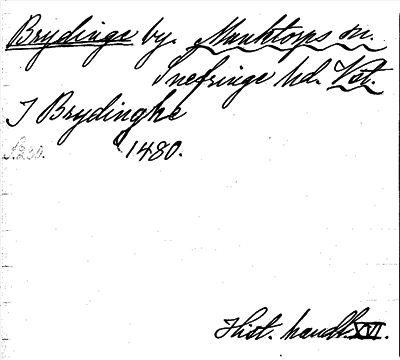 Brydinge by. Munktorps sn.
Snefringe hd. Vst.
I Brydinghe
1480.
Hist. handl. XVI.